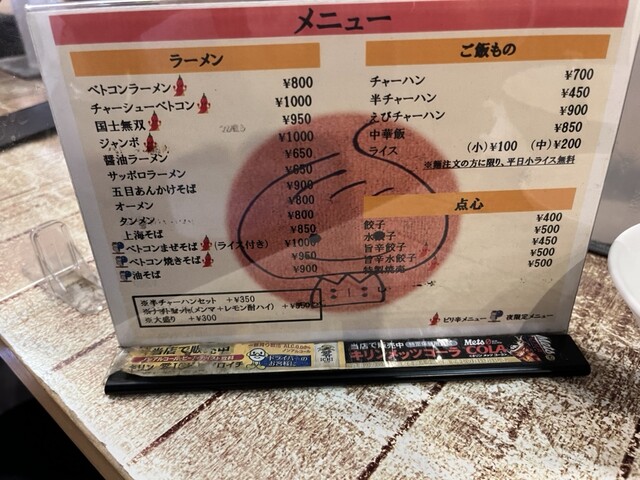 メニュー
ラーメン
ベトコンラーメン ¥800
チャーシューベトコン ¥1000
国士無双 ¥950
ジャンボ ¥1000
醬油ラーメン ¥650
サッポロラーメン ¥650
五目あんかけそば ¥900
オーメン ¥800
タンメン ¥800
上海そば ¥850
ベトコンまぜそば(ライス付き) ¥1000
ベトコン焼きそば ¥950
油そば ¥900
※半チャーハンセット +¥350
(メンマ+レモン酎ハイ)
※大盛り +¥300
ご飯もの
チャーハン ¥700
半チャーハン ¥450
えびチャーハン ¥900
中華飯 ¥850
ライス (小)¥100 (中)¥200
※麺注文の方に限り、平日小ライス無料
点心
餃子 ¥400
水餃子 ¥500
旨辛餃子 ¥450
旨辛水餃子 ¥500
¥500
ピリ辛メニュー 夜限定メニュー
当店で販売中
キリン メッツコーラ
Mets COLA
ドライバーのお客様に
ICHI